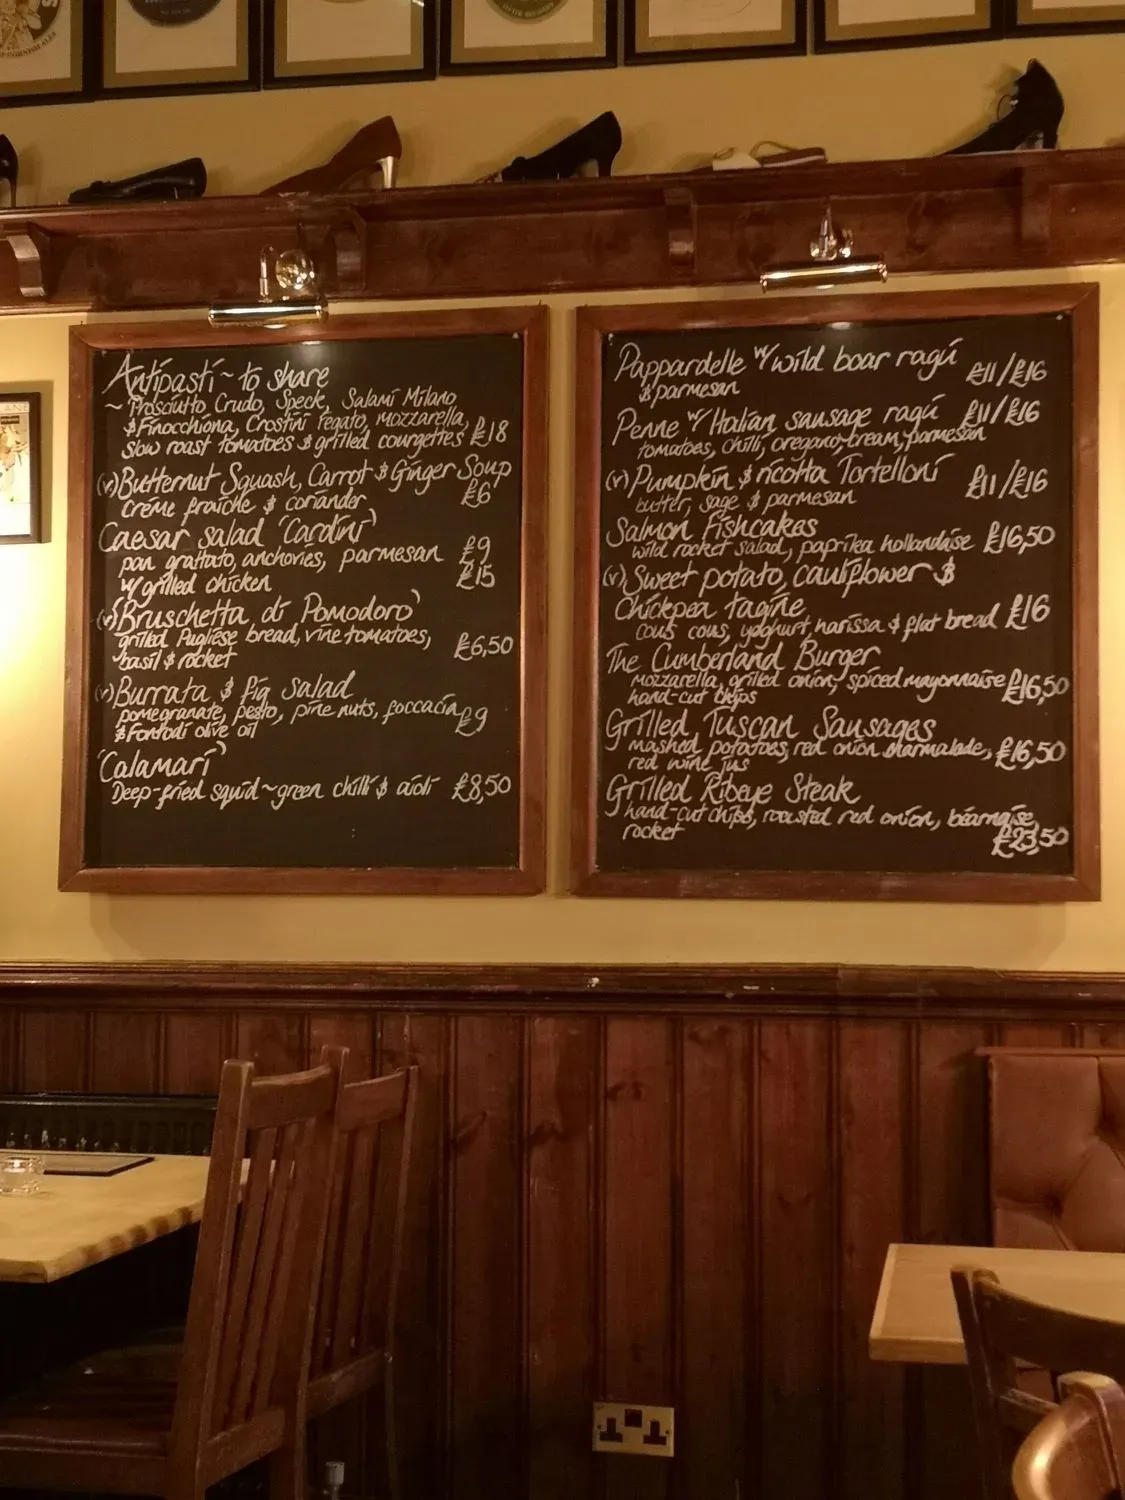 Antipasti ~ to share
~ Prosciutto Crudo, Speck, Salami Milano
& Finocchiona, Crostini Fegato, Mozzarella,
slow roast tomatoes & grilled courgettes £18
(v) Butternut Squash, Carrot & Ginger Soup
créme fraîche & coriander £6
Caesar salad 'Cardini'
pan grattato, anchovies, parmesan £9
w/ grilled chicken £15
(v) 'Bruschetta di Pomodoro'
grilled Pugliese bread, vine tomatoes,
basil & rocket £6,50
(v) Burrata & fig salad
pomegranate, pesto, pine nuts, foccacia £9
& Fontodi olive oil
'Calamari'
Deep-fried squid ~ green chilli & aioli £8,50
Pappardelle w/ wild boar ragú
& parmesan £11/£16
Penne w/ Italian sausage ragú £11/£16
tomatoes, chilli, oregano, cream, parmesan
(v) Pumpkin & ricotta Tortelloni £11/£16
butter, sage & parmesan
Salmon Fishcakes
wild rocket salad, paprika hollandaise £16,50
(v) Sweet potato, cauliflower &
Chickpea tagine
cous cous, yoghurt, harissa & flat bread £16
The Cumberland Burger
mozzarella, grilled onion, spiced mayonnaise £16,50
hand-cut chips
Grilled Tuscan Sausages
mashed potatoes, red onion marmalade, £16,50
red wine jus
Grilled Ribeye Steak
hand-cut chips, roasted red onion, béarnaise,
rocket £23,50